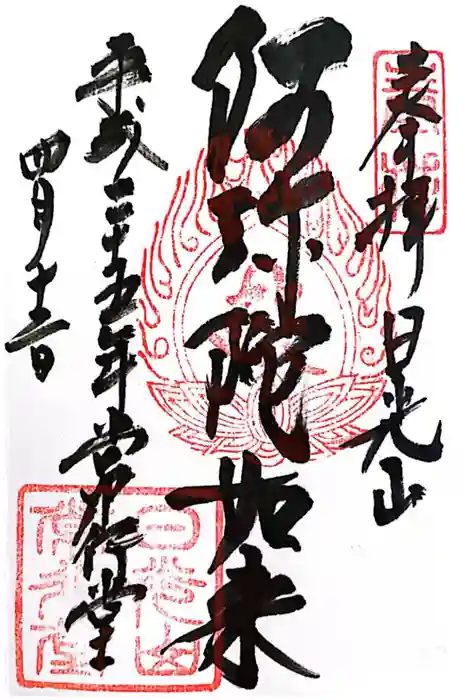 奉拝 日光山
阿弥陀如来
平成二十五年 常行堂
四月十三日
日光山
常行堂